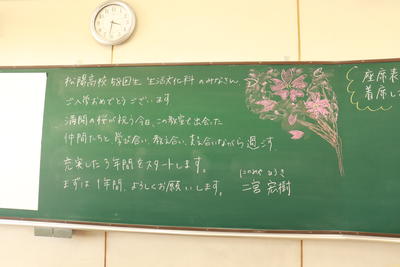 松陽高校 58回生 生活文化科のみなさん、
ご入学おめでとうございます
満開の桜が祝う今日、この教室で出会った
仲間たちと 学び合い、教え合い、支え合いながら 過ごす、
充実した3年間をスタートします。
まずは1年間、よろしくお願いします。
にのみや ひろき
二宮 宏樹
座席表
着席し